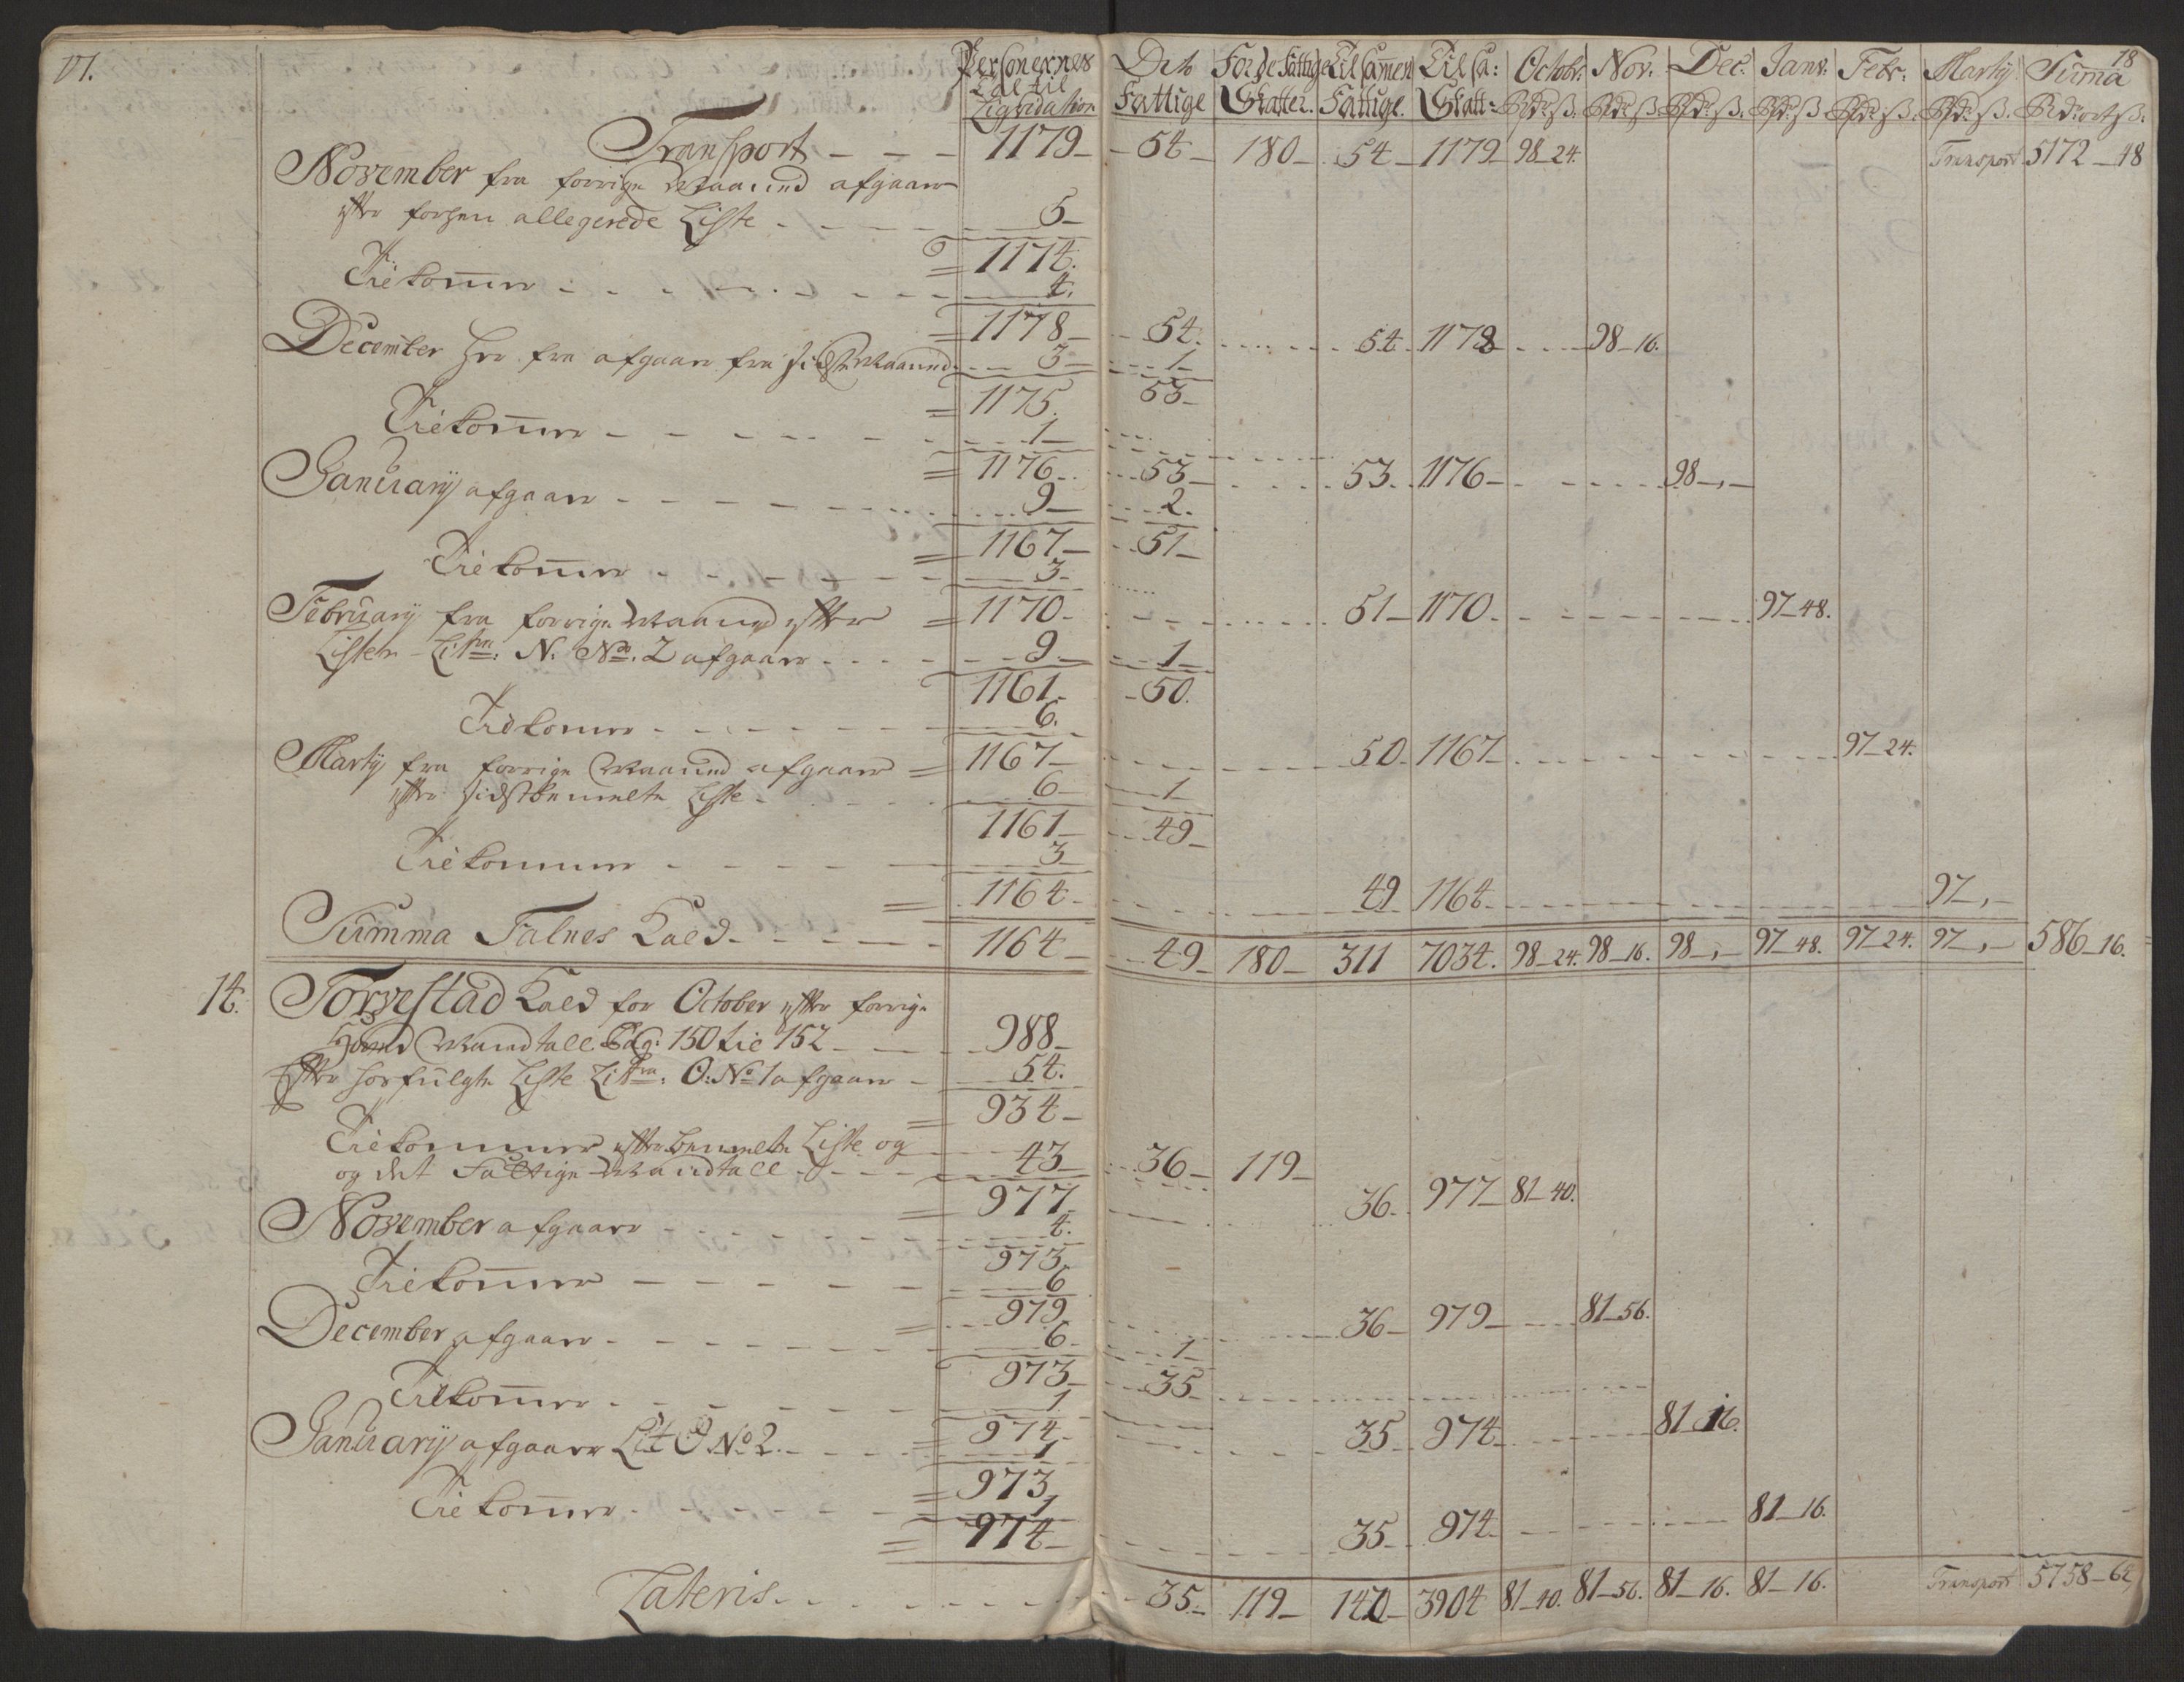 17.
18
Personernes Tal til Liqvidation | Dito Fattige | For de Fattige Skatter | Tilsammen Fattige. | Til sa: Skatt: | Octobr: Rdr ß. | Nov. Rdr ß. | Dec: Rdr ß. | Janr: Rdr ß | Febr: Rdr ß. | Martij Rdr ß. | Summa Rdr ort ß.
Transport - - - 1179 - 54 - 180 - 54 - 1179 98-24. Transport 5172-48
November fra forrige Maaned afgaar
efter forhen allegerede Liste - - - 5
1174.
Tilkommer - - - 4.
1178 - 54. - 54. 1178 - 98-16.
December her fra afgaar fra sidste Maaned - 3 - 1
1175. 53
Tilkommer - - - 1
1176 - 53 - 53. 1176 - 98-,-
Januarij afgaar - - - 9 - 2.
1167 - 51
Tilkommer - - - 3
1170 - 51 - 1170 - 97-48.
Februarij fra forrige Maaned efter
Listen Litra: N. No. 2 afgaar - - - 9 - 1
1161 - 50.
Tilkommer - - - 6.
1167 - 50 - 1167 - 97-24.
Martij fra forrige Maaned afgaar
efter sidstbemelte Liste - 6 - 1
1161 - 49
Tilkommer - - - 3
1164 - 49 1164 - 97-,-
Summa Falnes Kald - - - 1164 - 49 - 180 - 311 7034. 98-24. 98-16. 98-,- 97-48. 97-24. 97-,- 586-16.
14. Torvestad Kald for October efter forrige
Mandtall Pag: 150 til 152 - - 988
Efter hosfulgte Liste Litra: O: No 1 afgaar - 54.
934
Tilkommer efter bemelte Liste og
og det Fattige Mandtall - - - 43 - 36 - 119
977 - 36. 977 - 81-40.
November afgaar - - - 4.
973
Tilkommer - - - 6
979 - 36 - 979 - 81-56.
December afgaar - - - 6 - 1
973 - 35
Tilkommer - - - 1
974 - 35 974 - 81-16.
Januarij afgaar Lit O No 2. - - - 1
973
Tilkommer - - - 1
974 - 35 974 - 81-16.
Lateris - - - 35 - 119 - 140 - 3904 81-40. 81-56. 81-16. 81-16. Transport 5758-64